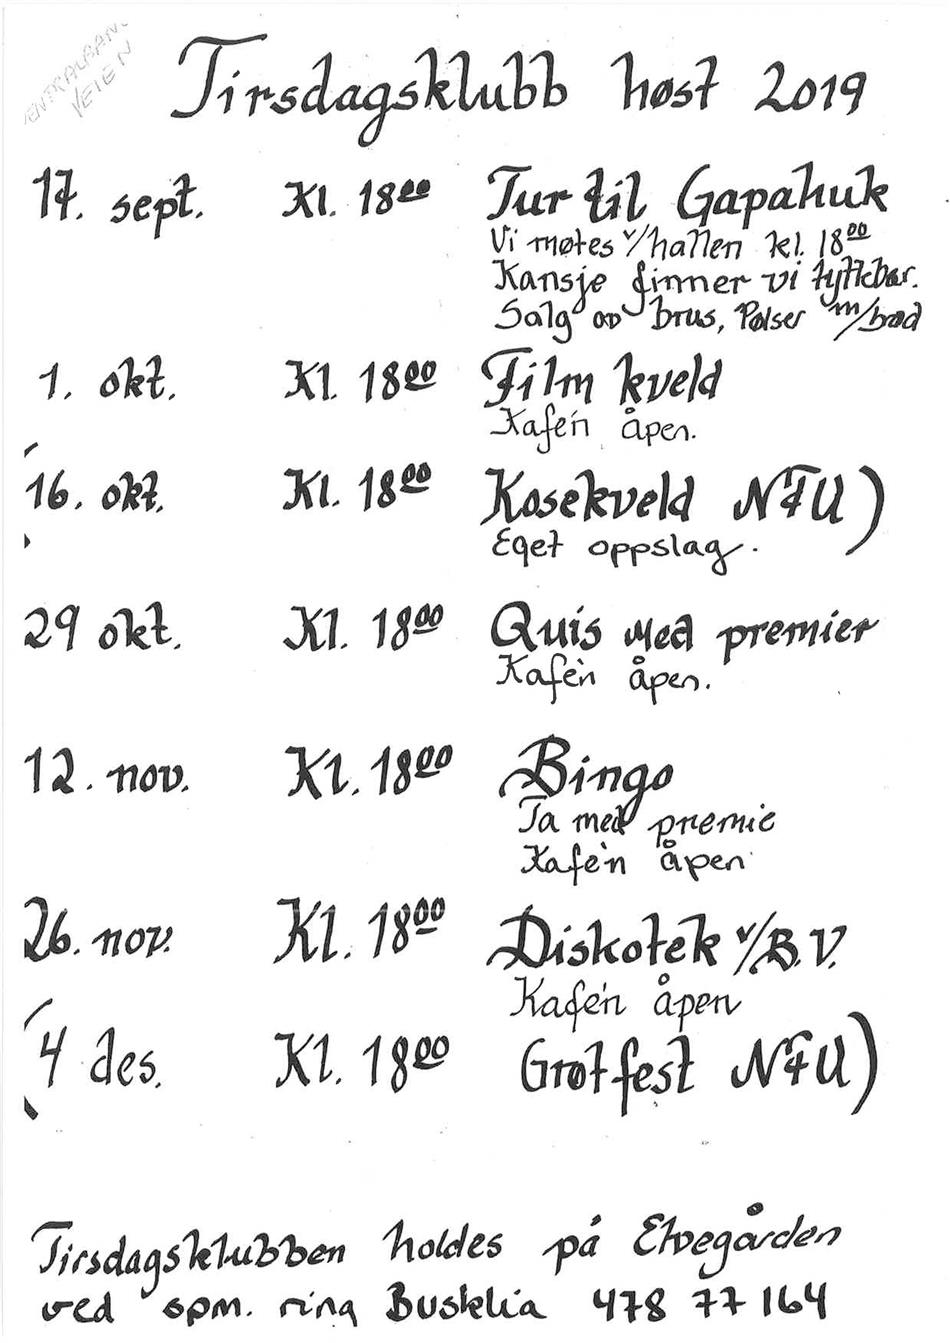 VEIEN
Tirsdagsklubb høst 2019
17. sept. Kl. 18 00 Tur til Gapahuk
Vi møtes v/hallen kl. 18 00
Kansje finner vi tyttebær.
Salg av brus, Pølser m/brød
1. okt. Kl. 18 00 Film kveld
Kafe'n åpen.
(16. okt. Kl. 18 00 Kosekveld NFU)
Eget oppslag.
29 okt. Kl. 18 00 Quis med premier
Kafe'n åpen.
12. nov. Kl. 18 00 Bingo
Ta med premie
Kafe'n åpen
26. nov. Kl. 18 00 Diskotek v/B.V.
Kafe'n åpen
(4 des. Kl. 18 00 Grøtfest NFU)
Tirsdagsklubben holdes på Elvegården
ved spm. ring Busklia 478 77 164